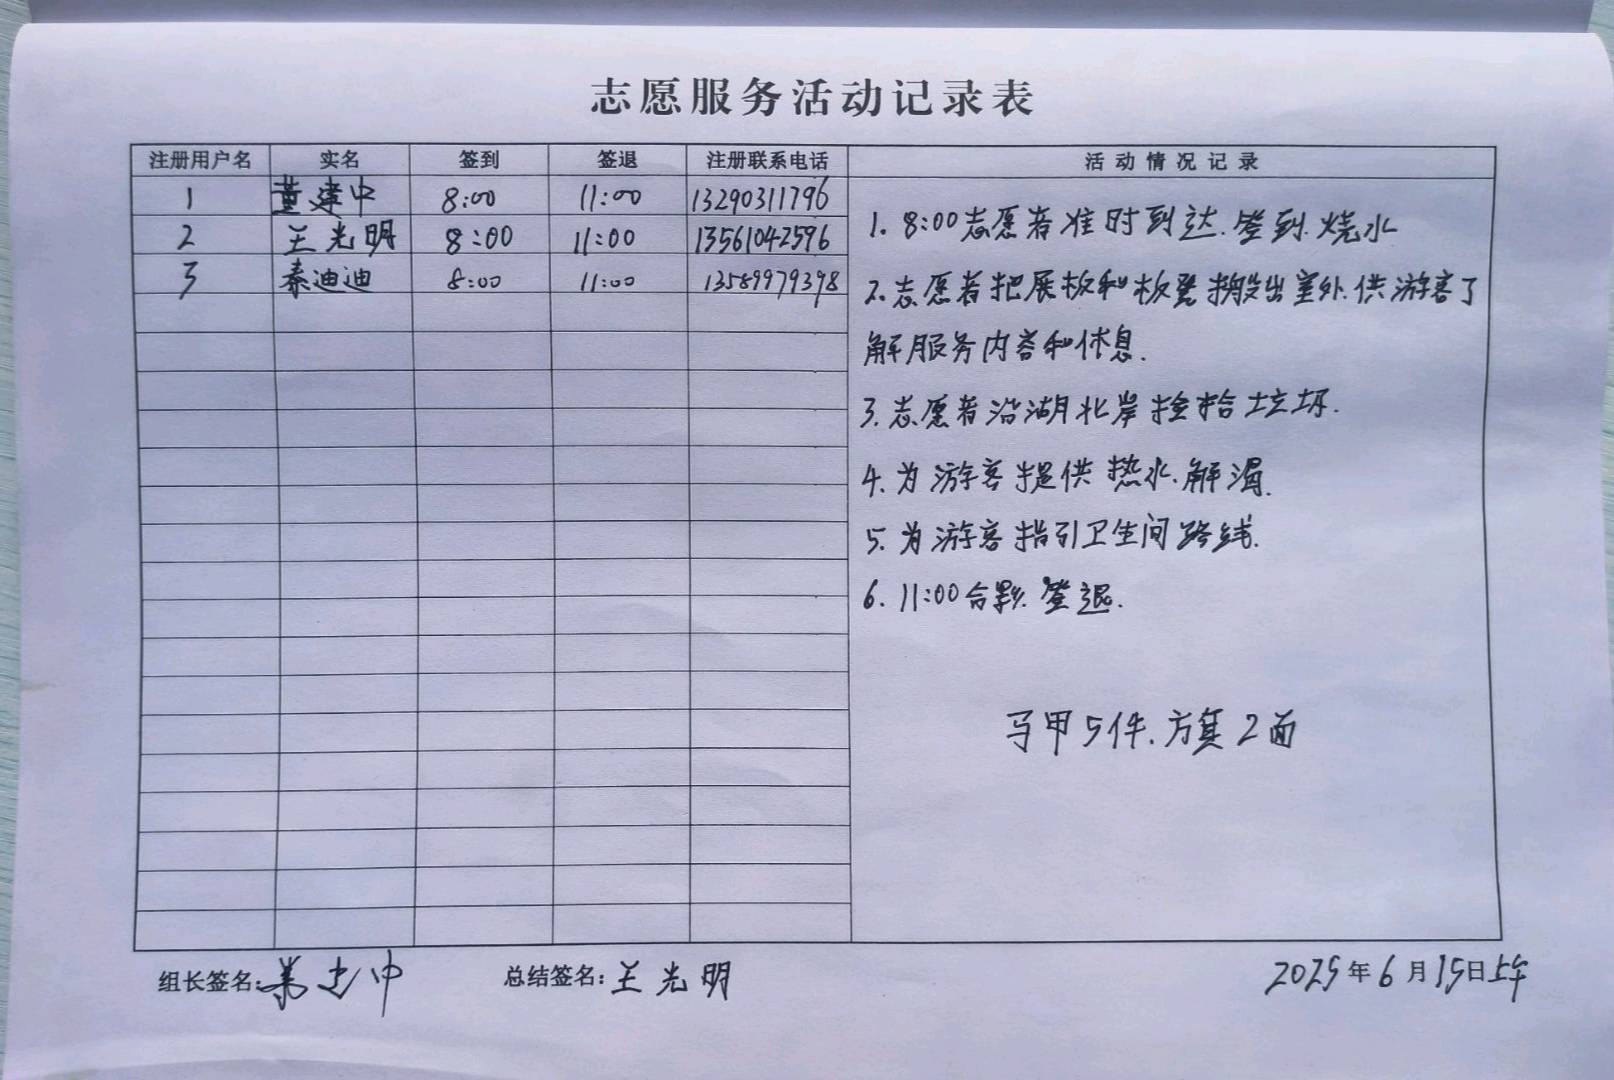 志愿服务活动记录表
注册用户名 实名 签到 签退 注册联系电话 活动情况记录
1 董建中 8:00 11:00 13290311796
2 王光明 8:00 11:00 13561042596
3 秦迪迪 8:00 11:00 13589979398
1. 8:00志愿者准时到达.签到.烧水
2.志愿者把展板和板凳搬出室外.供游客了
解服务内容和休息.
3.志愿者沿湖北岸捡拾垃圾.
4.为游客提供热水.解渴.
5.为游客指引卫生间路线.
6. 11:00合影.签退.
马甲5件.方旗2面
组长签名:董建中 总结签名:王光明 2025年6月15日上午